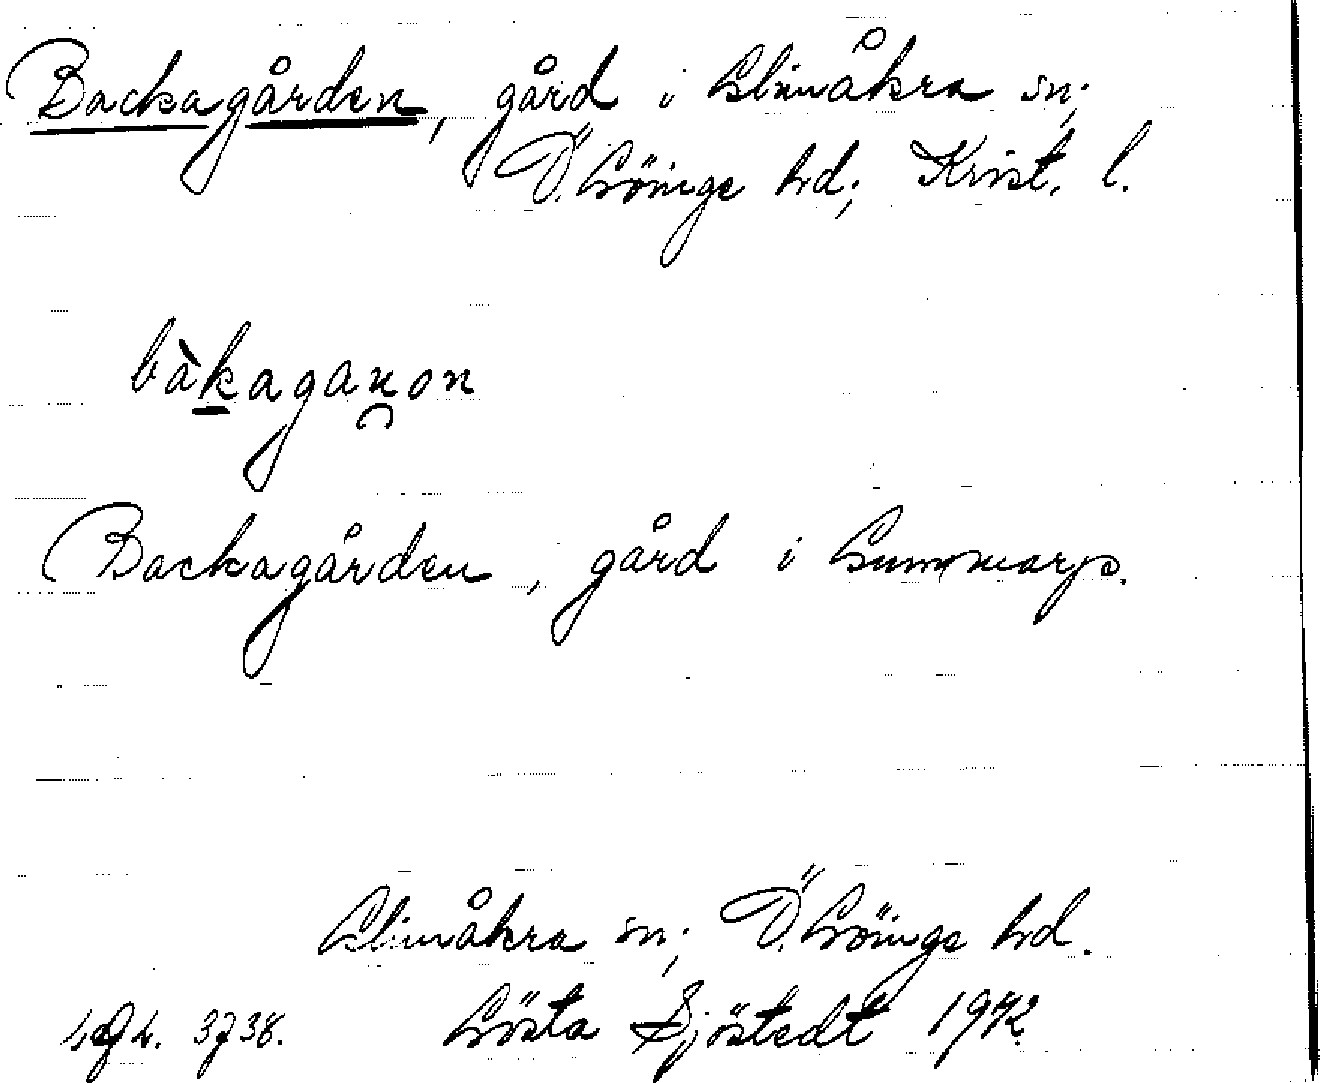 Backagården, gård i Glimåkra sn;
Ö. Göinge hd; Krist. l.
bàkagaṉon
Backagården, gård i Gummarp.
Glimåkra sn; Ö. Göinge hd.
Gösta Sjöstedt 1942